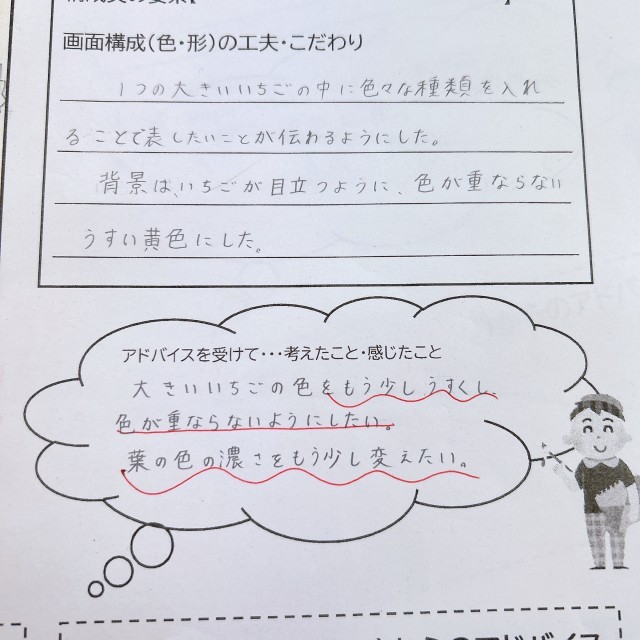 画面構成(色・形)の工夫・こだわり
1つの大きいいちごの中に色々な種類を入れ
ることで表したいことが伝わるようにした。
背景は、いちごが目立つように、色が重ならない
うすい黄色にした。
アドバイスを受けて・・・考えたこと・感じたこと
大きいいちごの色をもう少しうすくし
色が重ならないようにしたい。
葉の色の濃さをもう少し変えたい。